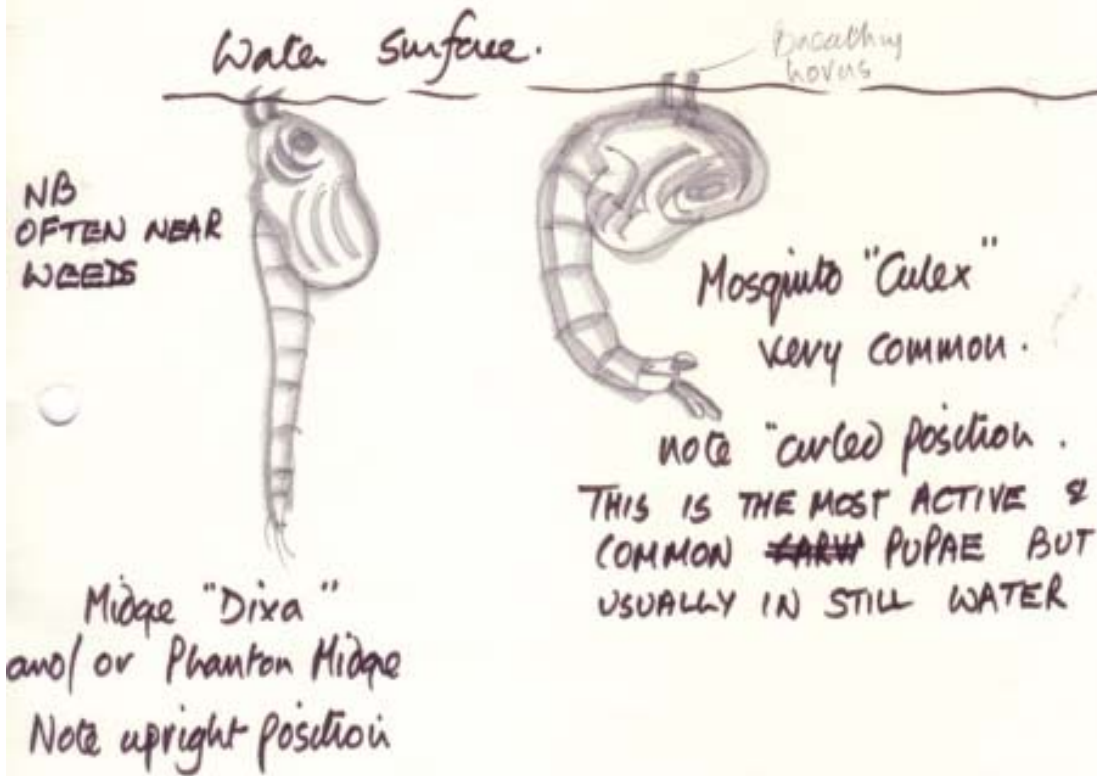 Water surface.
Breathing
horns
NB
OFTEN NEAR
WEEDS
Mosquito "Culex"
very common.
note "curled position.
THIS IS THE MOST ACTIVE &
COMMON PUPAE BUT
USUALLY IN STILL WATER
Midge "Dixa"
and/or Phantom Midge
Note upright position